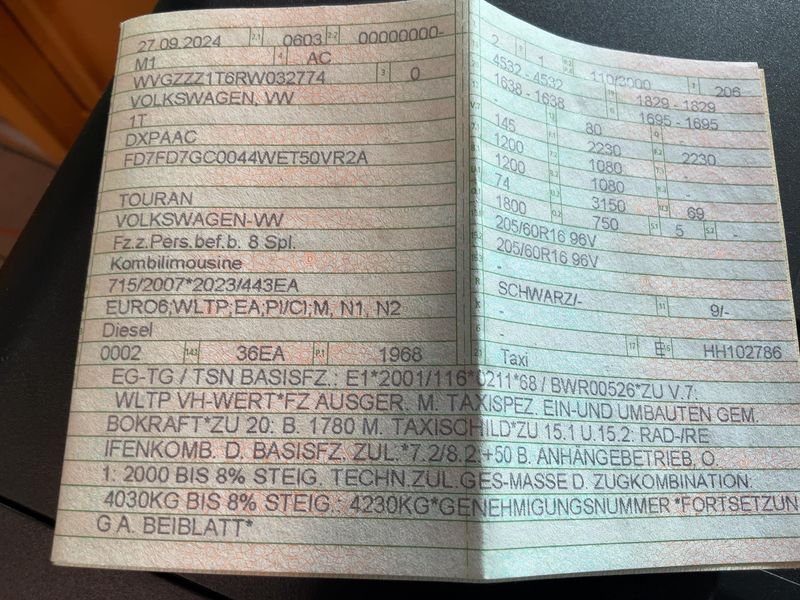 27.09.2024 2.1 0603 2.2 00000000-
M1 4 AC
WVGZZZ1T6RW032774 3 0
VOLKSWAGEN, VW
1T
DXPAAC
FD7FD7GC0044WET50VR2A
TOURAN
VOLKSWAGEN-VW
Fz.z.Pers.bef.b. 8 Spl.
Kombilimousine
715/2007*2023/443EA
EURO6;WLTP;EA;PI/CI;M, N1, N2
Diesel
0002 14.1 36EA P.1 1968
2 1 110/3000 206
4532 - 4532 1829 - 1829
1638 - 1638 1695 - 1695
145 80 -
1200 2230 2230
1200 1080 -
74 1080 -
1800 3150 69
205/60R16 96V 750 5 -
205/60R16 96V
-
SCHWARZ/- 9/-
-
- HH102786
Taxi
EG-TG / TSN BASISFZ.: E1*2001/116*0211*68 / BWR00526*ZU V.7:
WLTP VH-WERT*FZ AUSGER. M. TAXISPEZ. EIN-UND UMBAUTEN GEM.
BOKRAFT*ZU 20: B. 1780 M. TAXISCHILD*ZU 15.1 U.15.2: RAD-/RE
IFENKOMB. D. BASISFZ. ZUL.*7.2/8.2:+50 B. ANHÄNGEBETRIEB, O.
1: 2000 BIS 8% STEIG. TECHN.ZUL.GES-MASSE D. ZUGKOMBINATION:
4030KG BIS 8% STEIG.: 4230KG*GENEHMIGUNGSNUMMER *FORTSETZUN
G A. BEIBLATT*